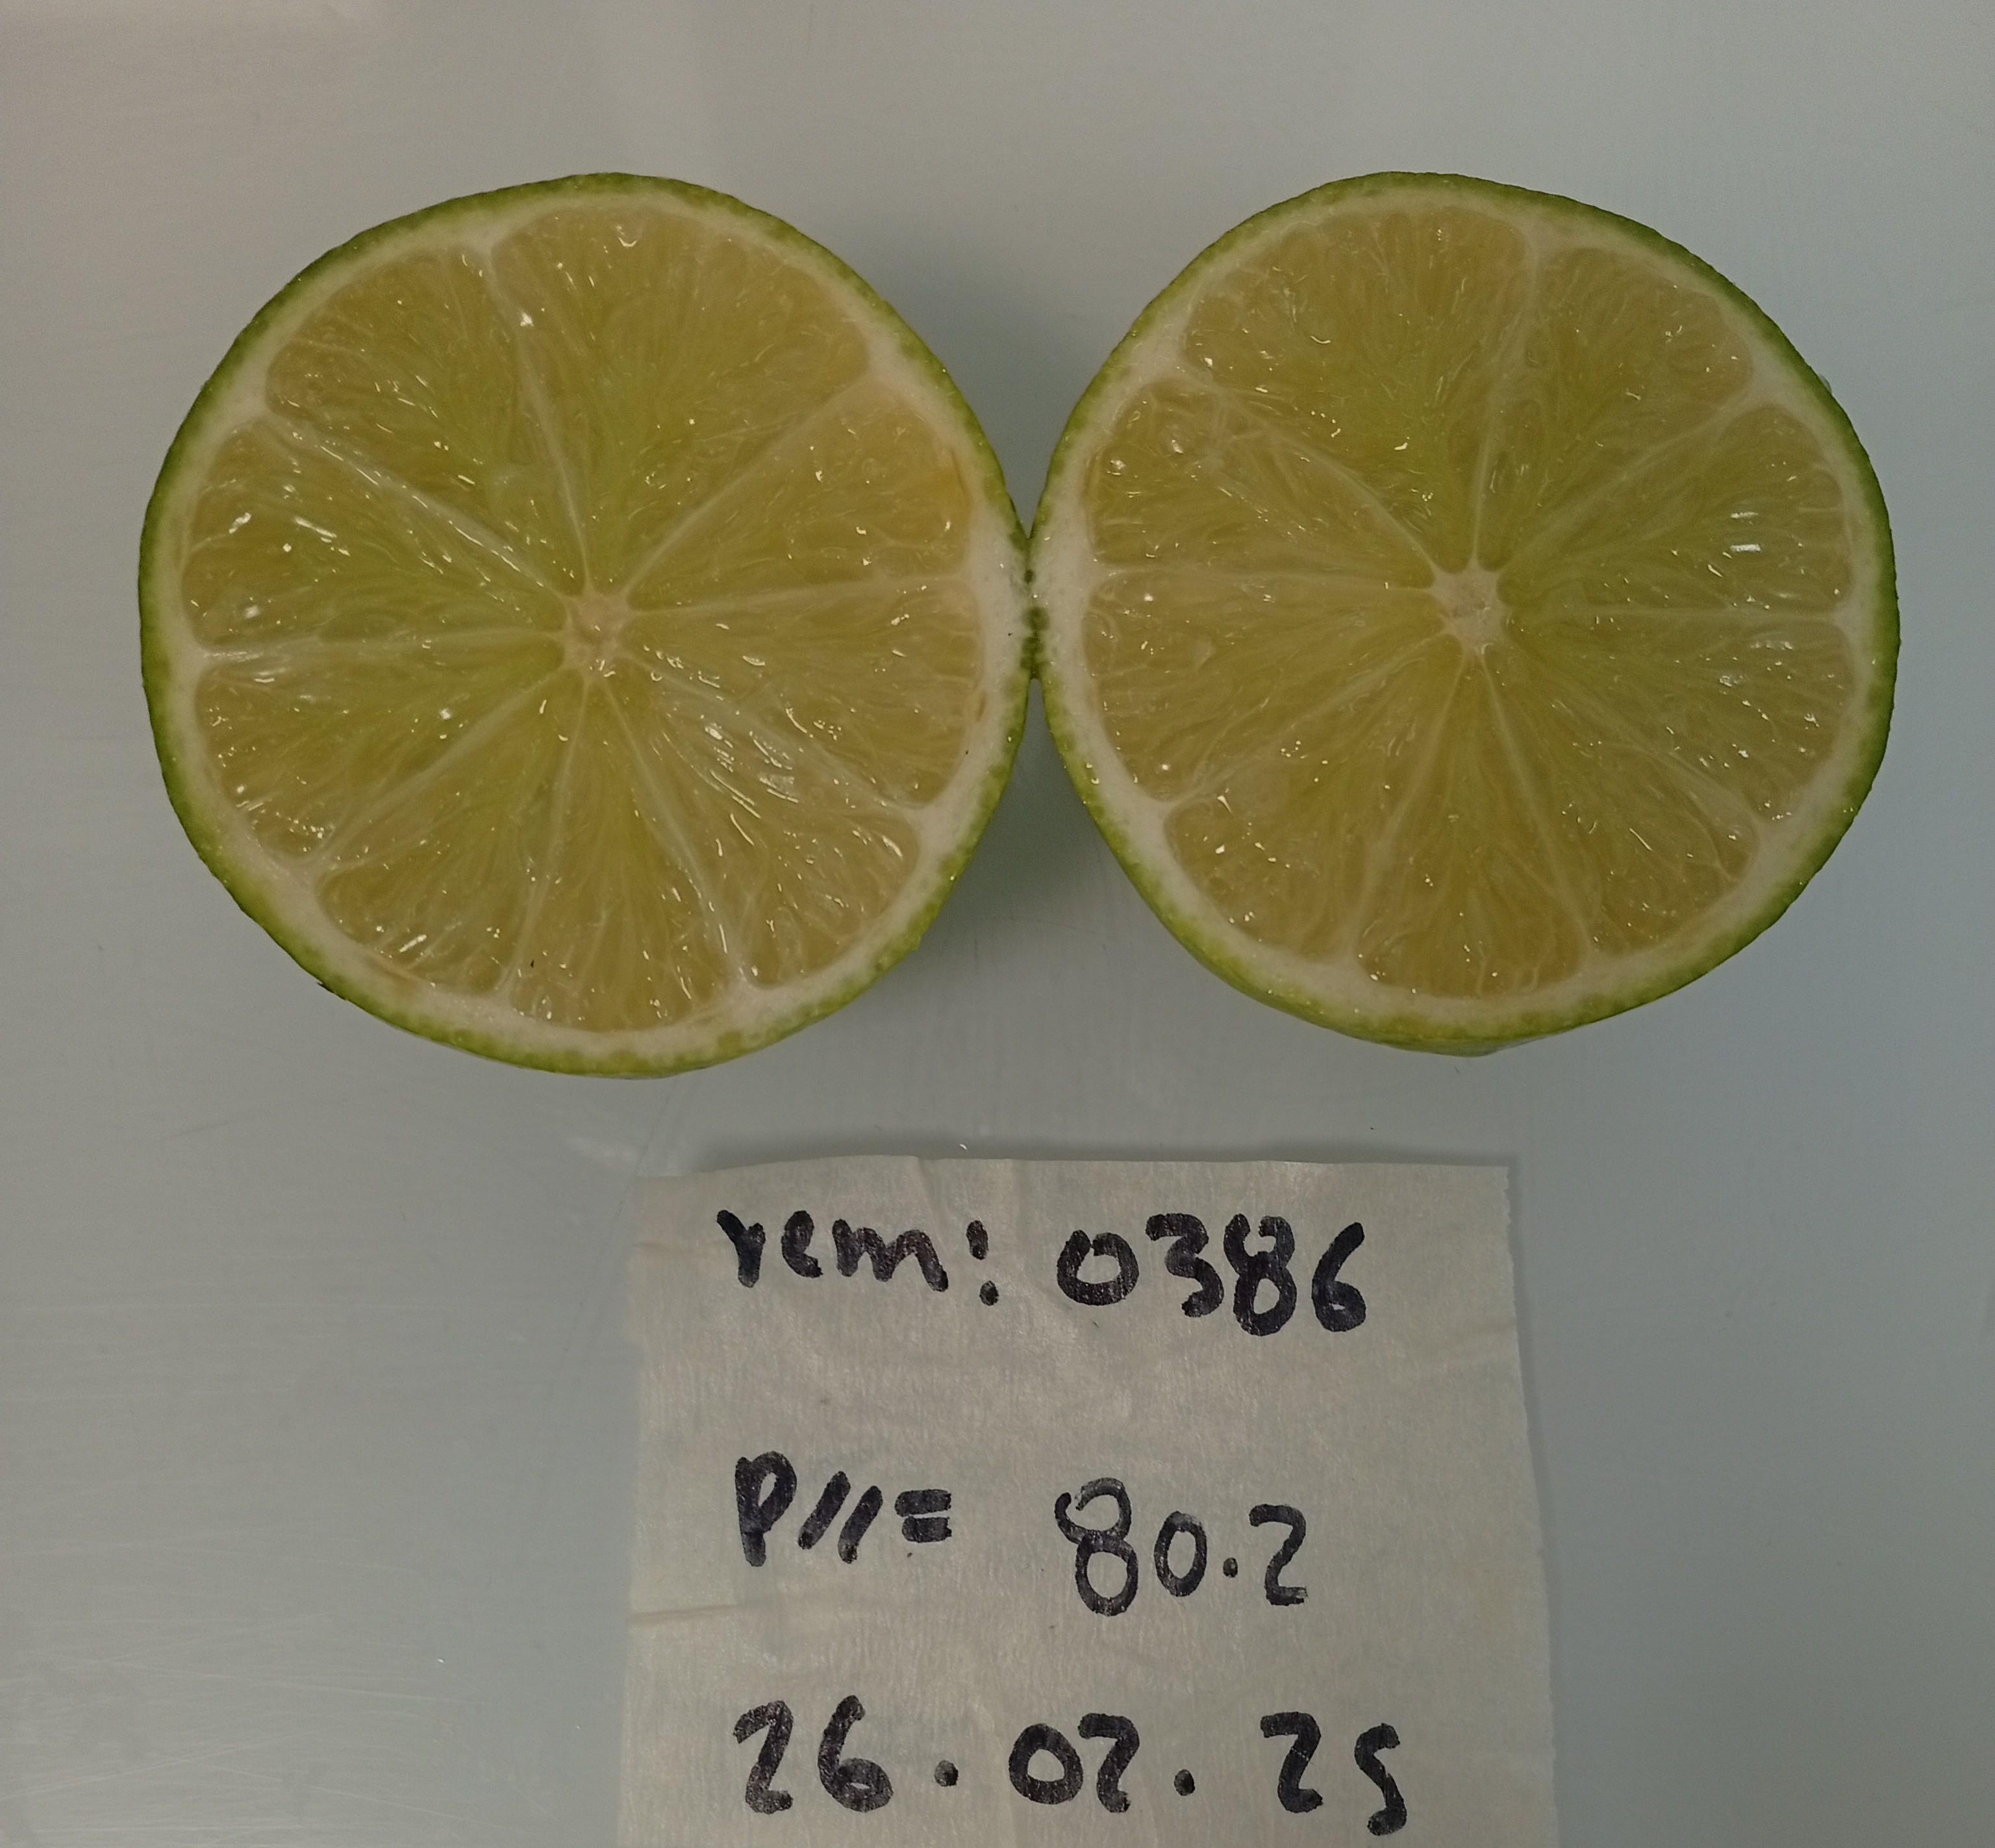 rem: 0386
P//= 80.2
26.02.25